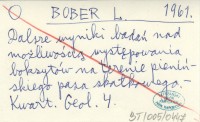 BOBER L. 1961.
Dalsze wyniki badań nad
możliwością występowania
boksytów na terenie pieniń-
skiego pasa skałkowego.-
Kwart. Geol. 4.
BJ/005/0467